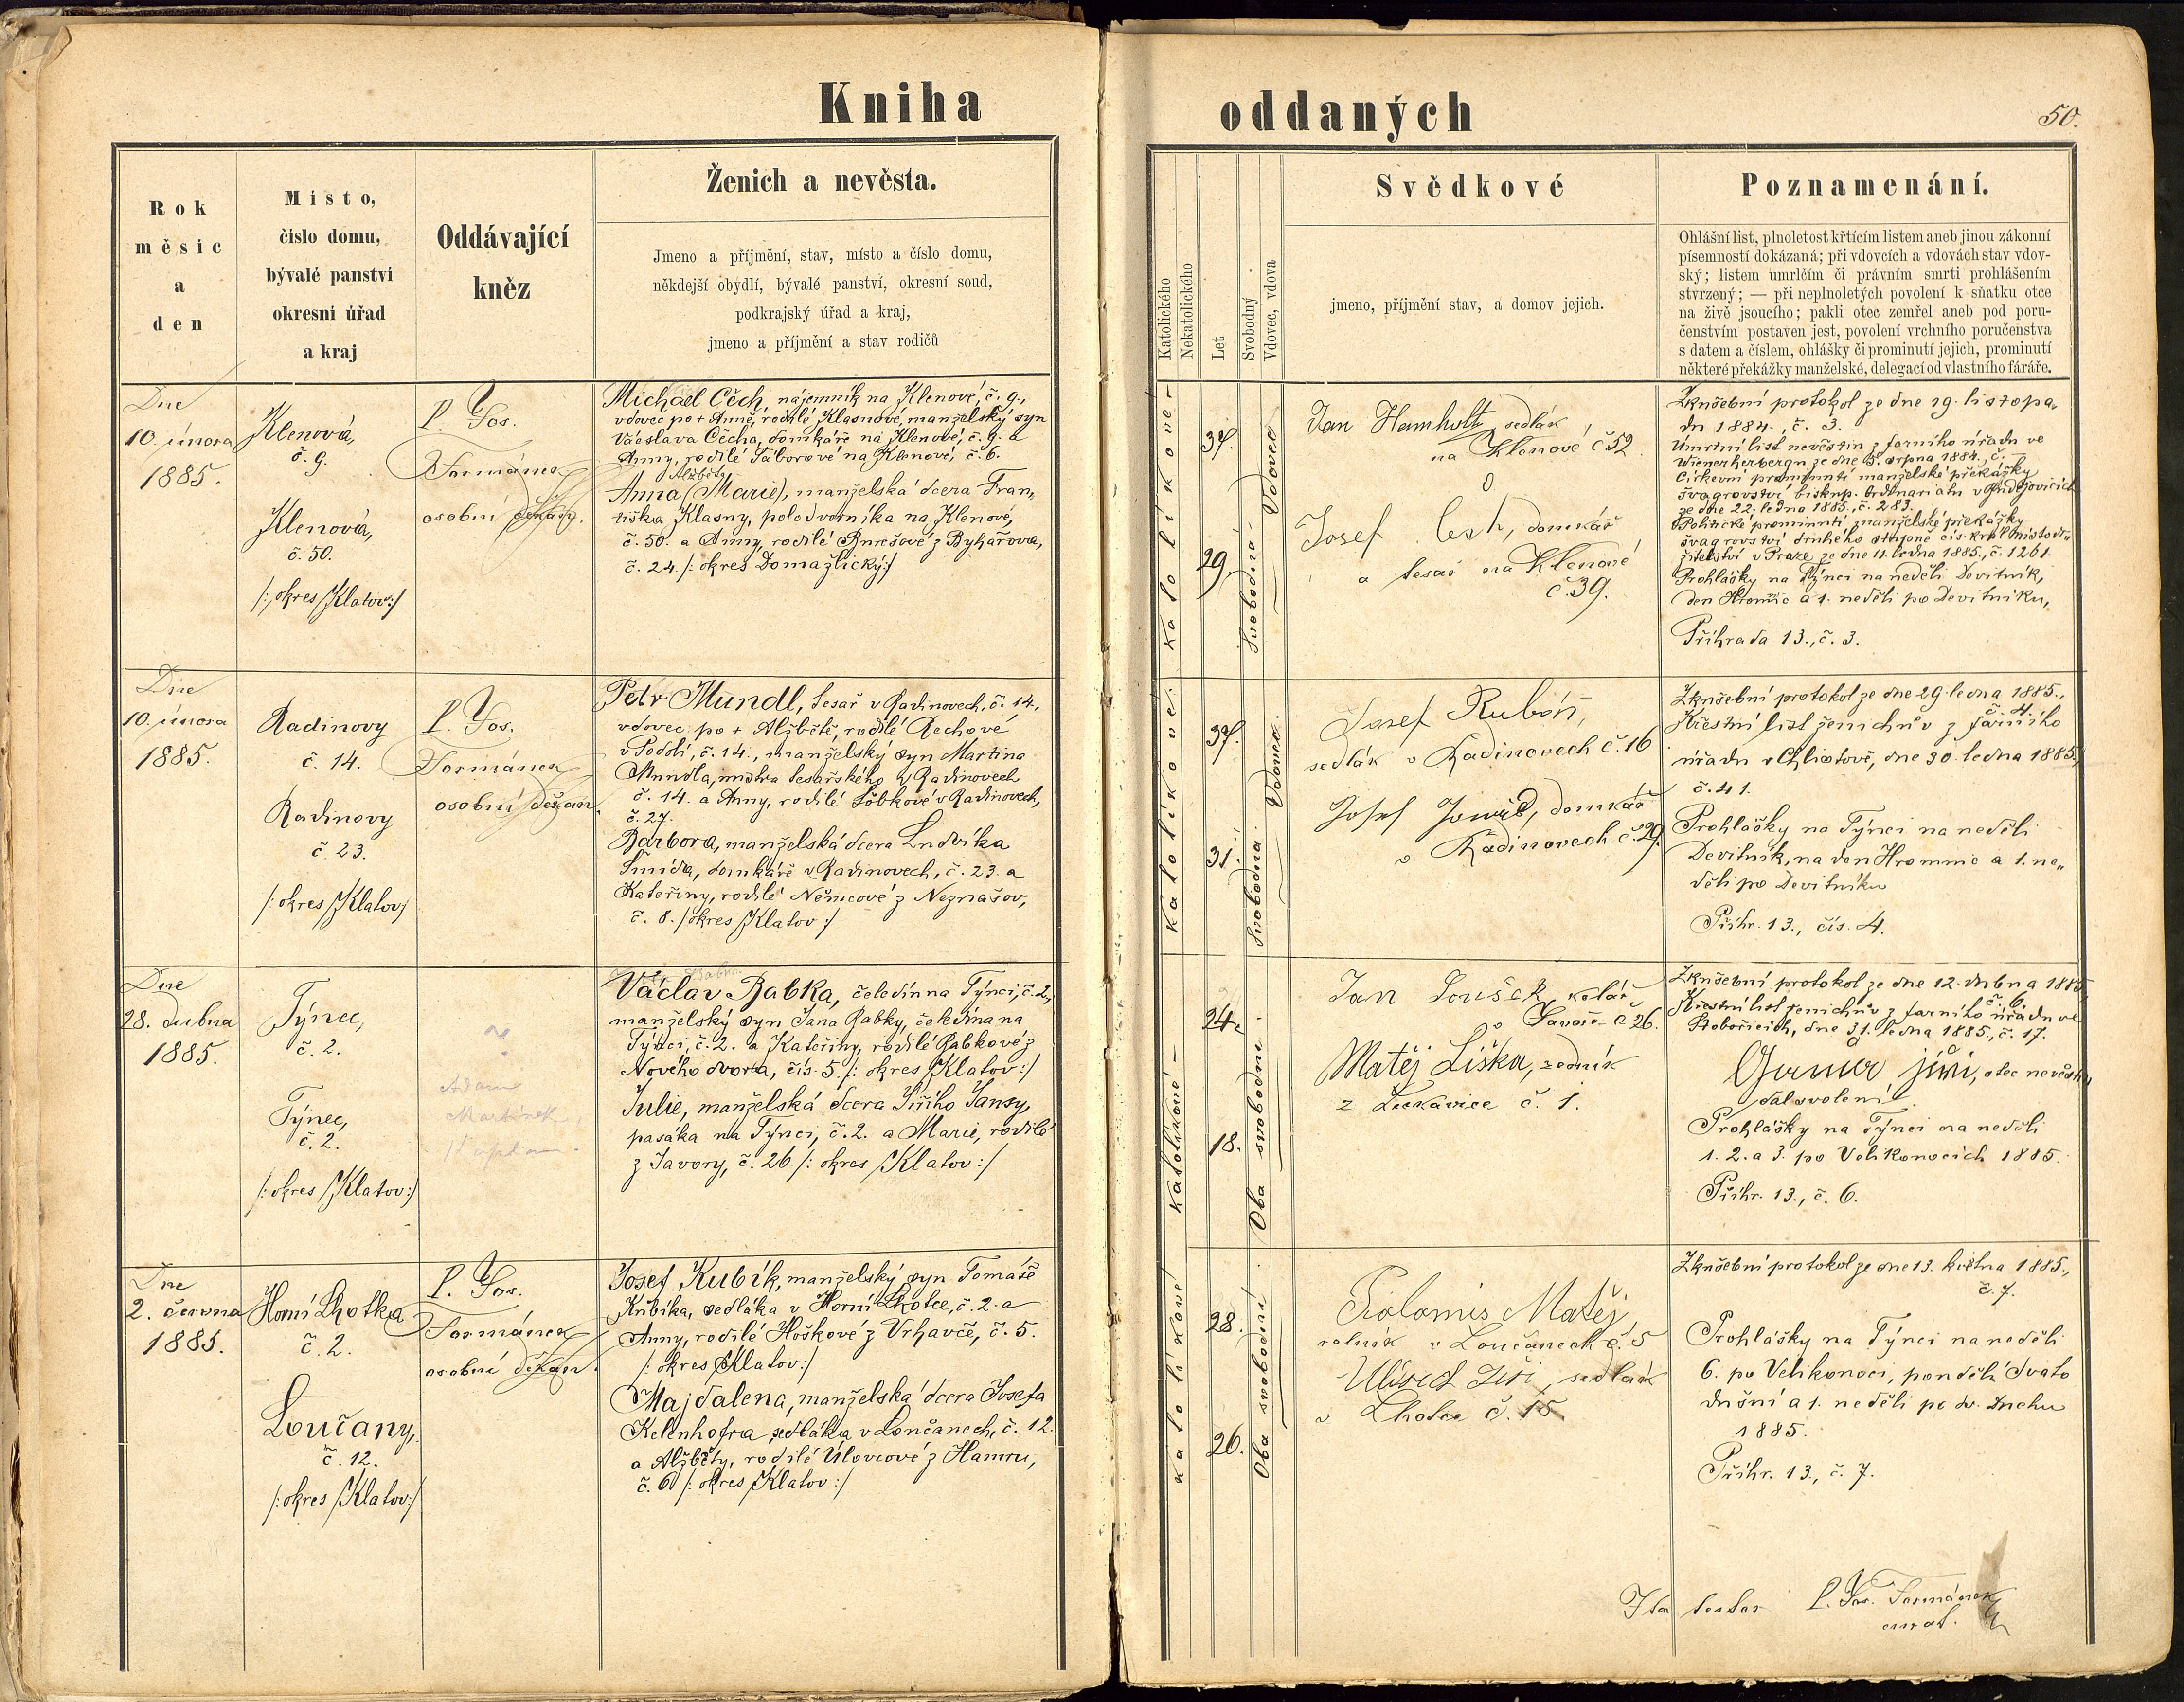 Kniha
oddaných
50.
Rok
měsíc
a
den
Místo,
číslo domu,
bývalé panství
okresní úřad
a kraj
Oddávající
kněz
Ženich a nevěsta.
Jmeno a příjmění, stav, místo a číslo domu,
někdejší obydlí, bývalé panství, okresní soud,
podkrajský úřad a kraj,
jmeno a příjmění a stav rodičů
Katolického
Nekatolického
Let
Svobodný
Vdovec, vdova
Svědkové
jmeno, příjmění stav, a domov jejich.
Poznamenání.
Ohlášní list, plnoletost křtícím listem aneb jinou zákonní
písemností dokázaná; při vdovcích a vdovách stav vdov-
ský; listem umrlčím či právním smrti prohlášením
stvrzený; — při neplnoletých povolení k sňatku otce
na živě jsoucího; pakli otec zemřel aneb pod poru-
čenstvím postaven jest, povolení vrchního poručenstva
s datem a číslem, ohlášky či prominutí jejich, prominutí
některé překážky manželské, delegací od vlastního fáráře.
Dne
10. února
1885.
Klenová,
č. 9.
Klenová,
č. 50.
/: okres Klatov :/
P. Jos.
Formánek
osobní děkan.
Michael Čech, nájemník na Klenové, č. 9.,
vdovec po + Anně, rodilé Klasnové, manželský syn
Václava Čecha, domkáře na Klenové, č. 9. a
Anny, rodilé Táborové na Klenové, č. 6.
Alžběta
Anna (Marie), manželská dcera Fran„
tiška Klasny, polodvorníka na Klenové,
č. 50. a Anny, rodilé Burešové z Bykářova,
č. 24. /: okres Domažlický :/
katolíkové
37.
29.
Vdovec
Svobodná
Jan Hamholtz, sedlák
na Klenové č 52
Josef Čech, domkář
a tesař na Klenové
č. 39.
Zknšební protokol ze dne 19. listopa„
du 1884., č. 3.
Úmrtní list nevěstin z farního úřadu ve
Wienerherbergu ze dne 5. srpna 1884, č. –
Církevní prominutí manželské překážky
švagrovství biskup. Ordinariatu v Budějovicích
ze dne 22. ledna 1885., č. 283.
Politické prominutí manželské překážky
švagrovství druhého stupně cís. král. místodr„
žitelství v Praze ze dne 11. ledna 1885., č. 1261.
Prohlášky na Týnci na neděli Devítník,
den Hromnic a 1. neděli po Devítníku,
Příhrada 13., č. 3.
Dne
10. února
1885.
Radinovy
č. 14.
Radinovy
č. 23.
/: okres Klatov :/
P. Jos.
Formánek
osobní děkan.
Petr Mundl, tesař v Radinovech, č. 14.,
vdovec po + Alžbětě, rodilé Rechové
v Podolí, č. 14., manželský syn Martina
Mundla, mistra tesařského v Radinovech
č. 14. a Anny, rodilé Löbkové v Radinovech,
č. 27.
Barbora, manželská dcera Ludvíka
Šmída, domkáře v Radinovech, č. 23. a
Kateřiny, rodilé Němcové z Neznašov,
č. 8. /: okres Klatov :/
katolíkové
37.
31.
Vdovec.
Svobodná
Josef Rubáš,
sedlák v Radinovech č. 16
Josef Jonáš, domkář
v Radinovech č. 29.
Zknšební protokol ze dne 29. ledna 1885.,
č. 4.
Křestní list ženichův z farního
úřadu v Chlistově, dne 30. ledna 1885.,
č. 41.
Prohlášky na Týnci na neděli
Devítník, na den Hromnic a 1. ne„
děli po Devítníku
Příhr. 13., čís. 4.
Dne
28. dubna
1885.
Týnec,
č. 2.
Týnec,
č. 2.
/: okres Klatov :/
Adam
Martínek,
kaplan.
Václav Babka, čeledín na Týnci, č. 2.,
manželský syn Jana Babky, čeledína na
Týnci, č. 2. a Kateřiny, rodilé Babkové z
Nového dvora, čís. 5. /: okres Klatov :/
Julie, manželská dcera Jiřího Jansy,
pasáka na Týnci, č. 2. a Marie, rodilé
z Javory, č. 26. /: okres Klatov :/
katolíkové
24.
18.
Oba svobodní
Jan Loušek, kolář
Javoře č 26.
Matěj Liška, zedník
z Lukavice č. 1.
Zknšební protokol ze dne 12. dubna 1885,
č. 6.
Křestní list ženichův z farního úřadu ve
Stobořicích, dne 31. ledna 1885., č. 17.
jiři, otec nevěsty,
dal svolení
Prohlášky na Týnci na neděli
1. 2. a 3. po Velikonocích 1885.
Příhr. 13., č. 6.
Dne
2. června
1885.
Horní Lhotka
č. 2.
Loučany,
č. 12.
/: okres Klatov :/
P. Jos.
Formánek
osobní děkan.
Josef Kubík, manželský syn Tomáše
Kubíka, sedláka v Horní Lhotce, č. 2. a
Anny, rodilé Hoškové z Vrhavče, č. 5.
/: okres Klatov :/
Majdalena, manželská dcera Josefa
Kelenhofra, sedláka v Loučanech, č. 12.
a Alžběty, rodilé Úlovcové z Hamru,
č. 6 /: okres Klatov :/
katolíkové
28.
26.
Oba svobodní
Tolomis Matěj
rolník v Loučanech č. 5
Jiří, sedlák
v Lhotce č. 15
Zknšební protokol ze dne 13. května 1885.,
č. 7.
Prohlášky na Týnci na neděli
6. po Velikonoci, pondělí Svato
dušní a 1. neděli po sv. Duchu
1885.
Příhr. 13., č. 7.
Ita testor P. Jos. Formánek
curat.